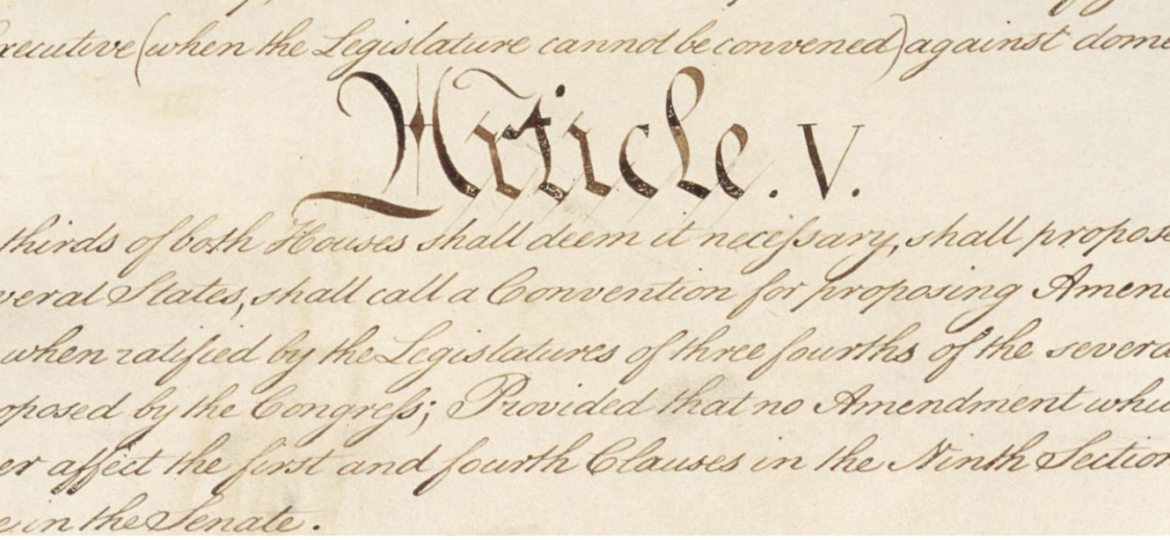 xecutive (when the Legislature cannot be convened) against dome
Article. V.
thirds of both Houses shall deem it necessary, shall propose
veral States, shall call a Convention for proposing Amend
when ratified by the Legislatures of three fourths of the severa
oposed by the Congress; Provided that no Amendment whic
er affect the first and fourth Clauses in the Ninth Section
e in the Senate.